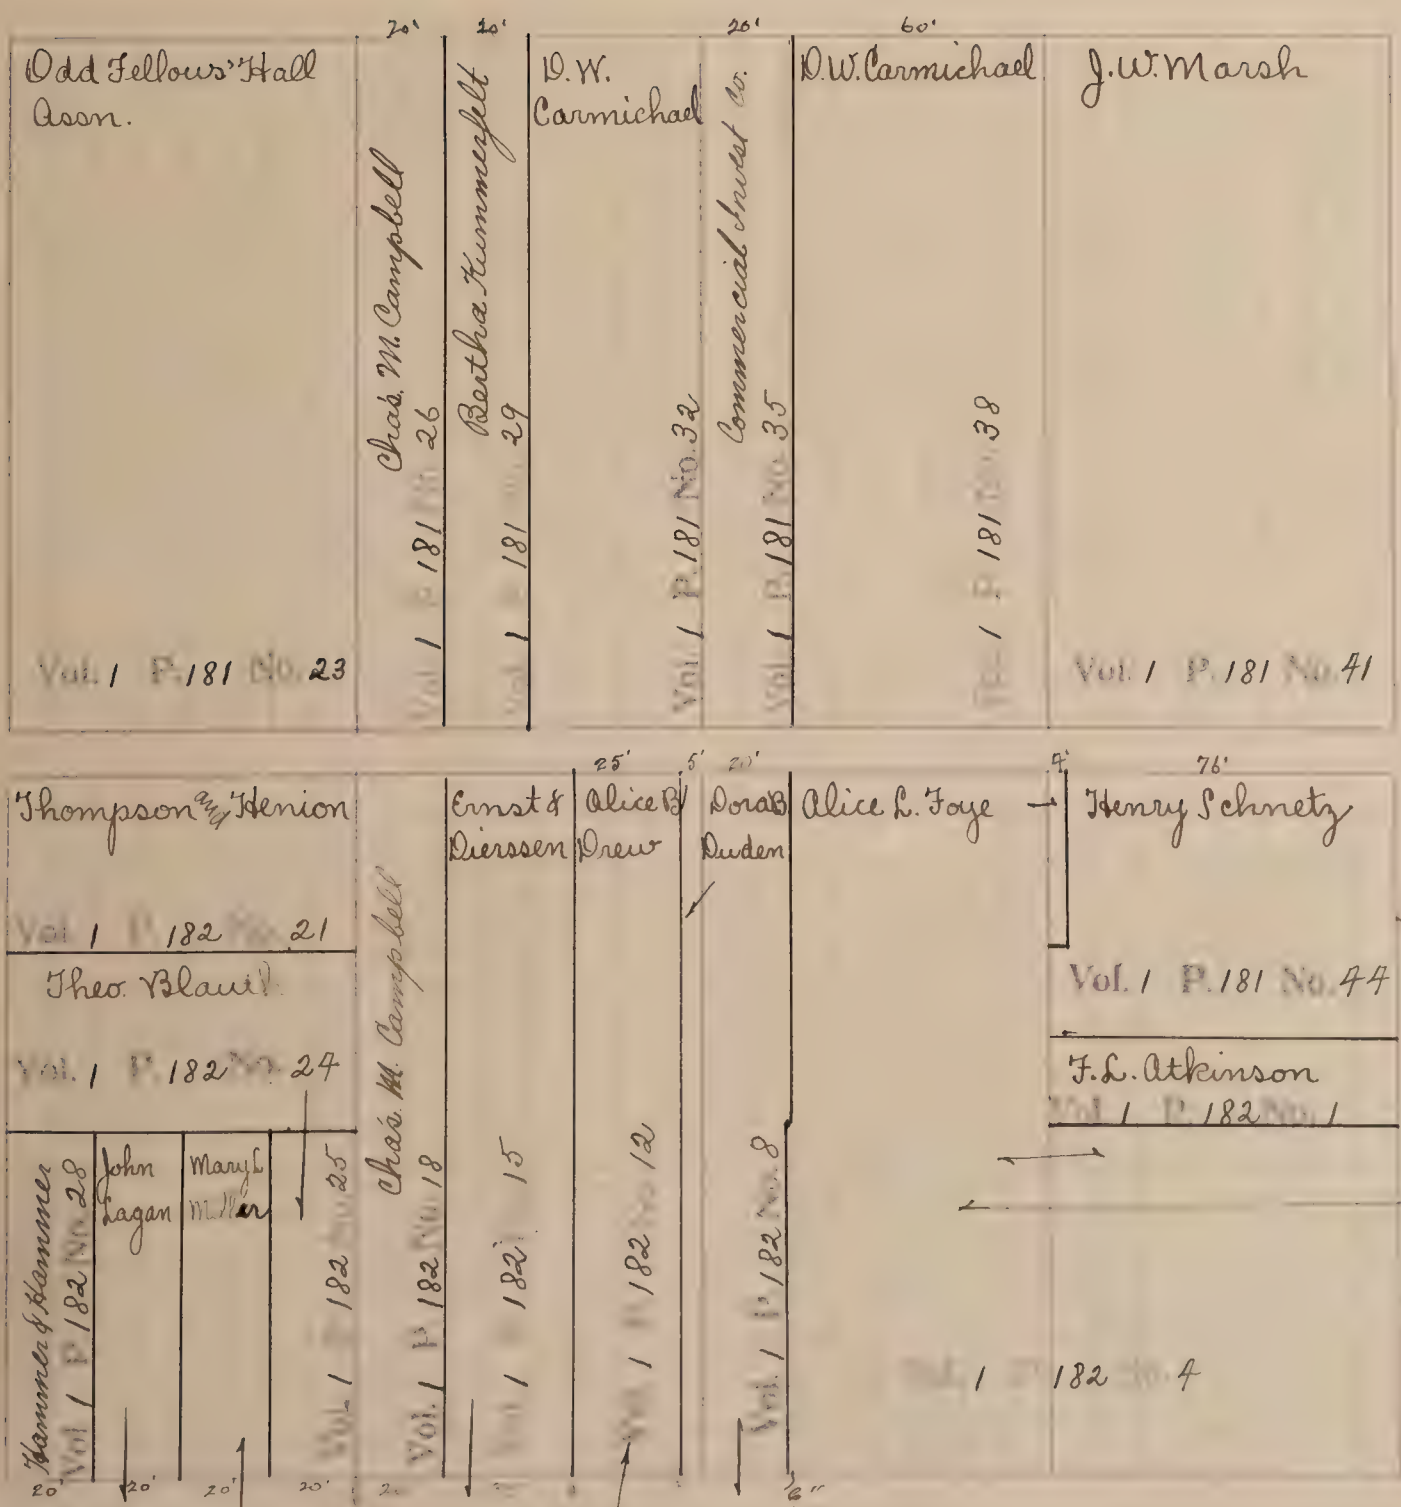 20' 20' 20' 60'
Odd Fellows' Hall
Assn.
Vol. 1 P. 181 No. 23
Chas. M. Campbell
Vol. 1 P. 181 No. 26
Bertha Kummerfelt
Vol. 1 P. 181 No. 29
D. W.
Carmichael
Vol. 1 P. 181 No. 32
Commercial Invest Co.
Vol. 1 P. 181 No. 35
D. W. Carmichael
1 P. 181 No. 38
J. W. Marsh
Vol. 1 P. 181 No. 41
25' 5' 20' 4' 76'
Thompson and Henion
Vol. 1 P. 182 No. 21
Theo.
Vol. 1 P. 182 No. 24
Hammer & Hammer
Vol. 1 P. 182 No. 28
John
Lagan
Mary L
Miller
Vol. 1 P. 182 No. 25
Chas. M. Campbell
Vol. 1 P. 182 No. 18
Ernst &
Dierssen
Vol. 1 P. 182 15
Alice B
Drew
Vol. 1 P. 182 No. 12
Dora B
Duden
Vol. 1 P. 182 No. 8
Alice L. Foye
Vol. 1 P. 182 No. 4
Henry Schnetz
Vol. 1 P. 181 No. 44
F. L. Atkinson
Vol. 1 P. 182 No. 1
20' 20' 20' 20' 6"